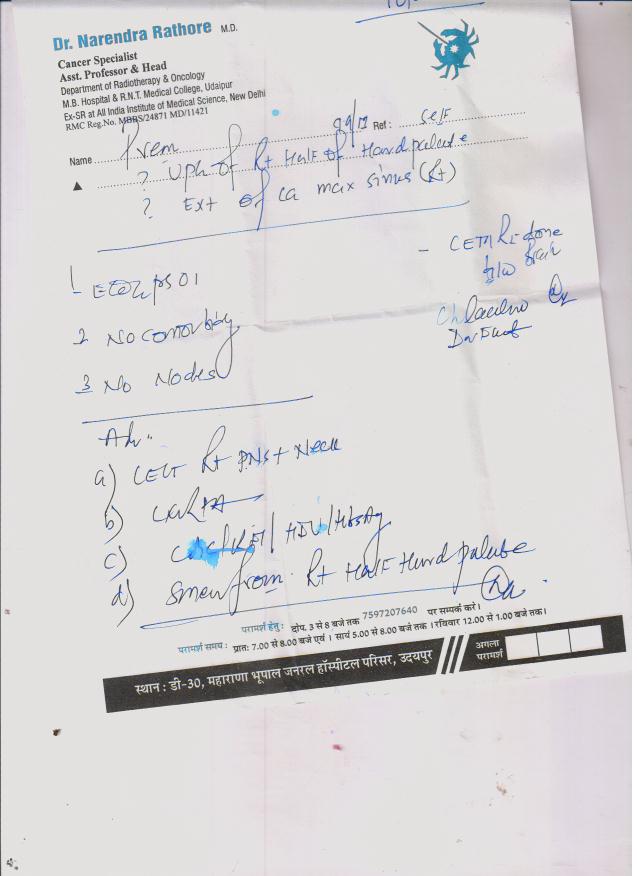 Dr. Narendra Rathore M.D.
Cancer Specialist
Asst. Professor & Head
Department of Radiotherapy & Oncology
M.B. Hospital & R.N.T. Medical College, Udaipur
Ex-SR at All India Institute of Medical Science, New Delhi
RMC Reg.No. MBBS/24871 MD/11421
Ref : Self
Name Prem
? of Rt Half of Hard palate
? Ext of ca max sinus (Rt)
1 PS 01
2 No
3 No Nodes
Adv.
a) CECT Rt PNS + Neck
b)
c) / HIV / HbsAg
d) Smear from Rt Half Hard palate
परामर्श हेतु : दोप. 3 से 8 बजे तक 7597207640 पर सम्पर्क करें।
परामर्श समय : प्रातः 7.00 से 8.00 बजे एवं । सायं 5.00 से 8.00 बजे तक । रविवार 12.00 से 1.00 बजे तक।
स्थान : डी-30, महाराणा भूपाल जनरल हॉस्पीटल परिसर, उदयपुर
अगला
परामर्श